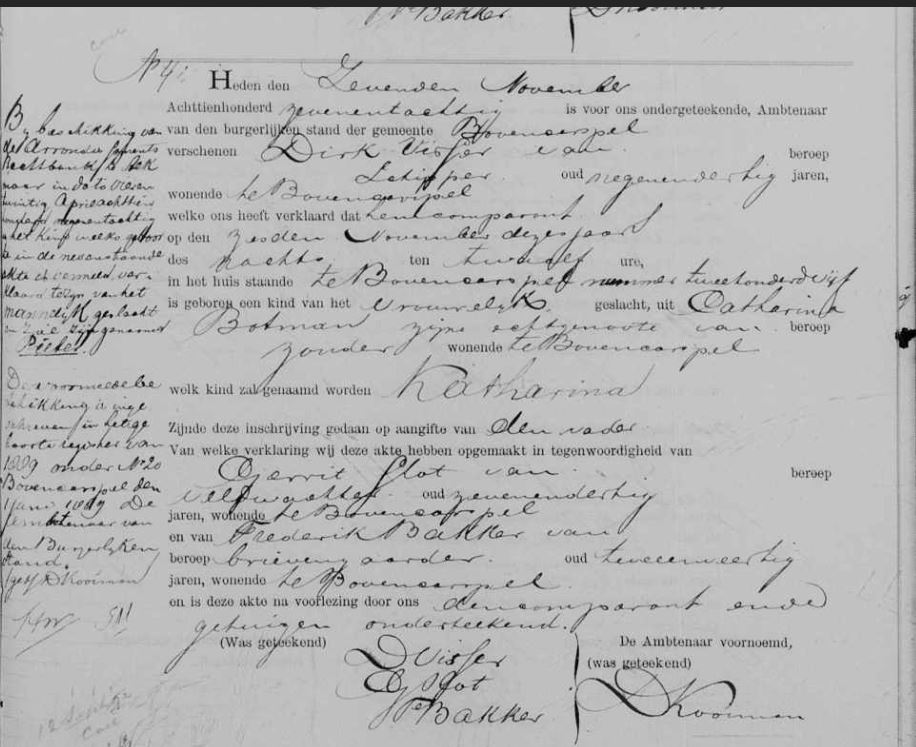 Bakker
DKooiman
No 41.
Heden den Zevenden November
Achttienhonderd zevenentachtig is voor ons ondergeteekende, Ambtenaar
van den burgerlijken stand der gemeente Bovencarspel
verschenen Dirk Visser van beroep
Schipper oud negenendertig jaren,
wonende te Bovencarspel
welke ons heeft verklaard dat hem comparant
op den zesden November dezes jaars
des nachts ten twaalf ure,
in het huis staande te Bovencarspel nummer tweehonderd vijf
is geboren een kind van het Vrouwelijk geslacht, uit Catharina
Botman zijne echtgenoote van beroep
zonder wonende te Bovencarspel
welk kind zal genaamd worden Katharina
Zijnde deze inschrijving gedaan op aangifte van den vader
Van welke verklaring wij deze akte hebben opgemaakt in tegenwoordigheid van
Gerrit Slot van beroep
veldwachter oud zevenendertig
jaren, wonende te Bovencarspel
en van Frederik Bakker van
beroep brievengaarder oud tweeenveertig
jaren, wonende te Bovencarspel
en is deze akte na voorlezing door ons den comparant en de
getuigen onderteekend.
(Was geteekend) De Ambtenaar voornoemd,
DVisser (was geteekend)
G Slot
Bakker DKooiman
By beschikking van
de Arrondissements
Rechtbank te Alk
maar in dato vieren
twintig April achttien
honderd negenentachtig
is het kind welks geboor
te in de nevenstaande
akte is vermeld, ver-
klaard te zijn van het
mannelijk geslacht
en zal zijn genaamd
Pieter.
Deze voormelde be
schikking is inge
schreven in het ge
boorte register van
1889 onder No 20
Bovencarspel den
Juni 1889 De
Ambtenaar van
den Burgerlyken
Stand.
(get) DKooiman